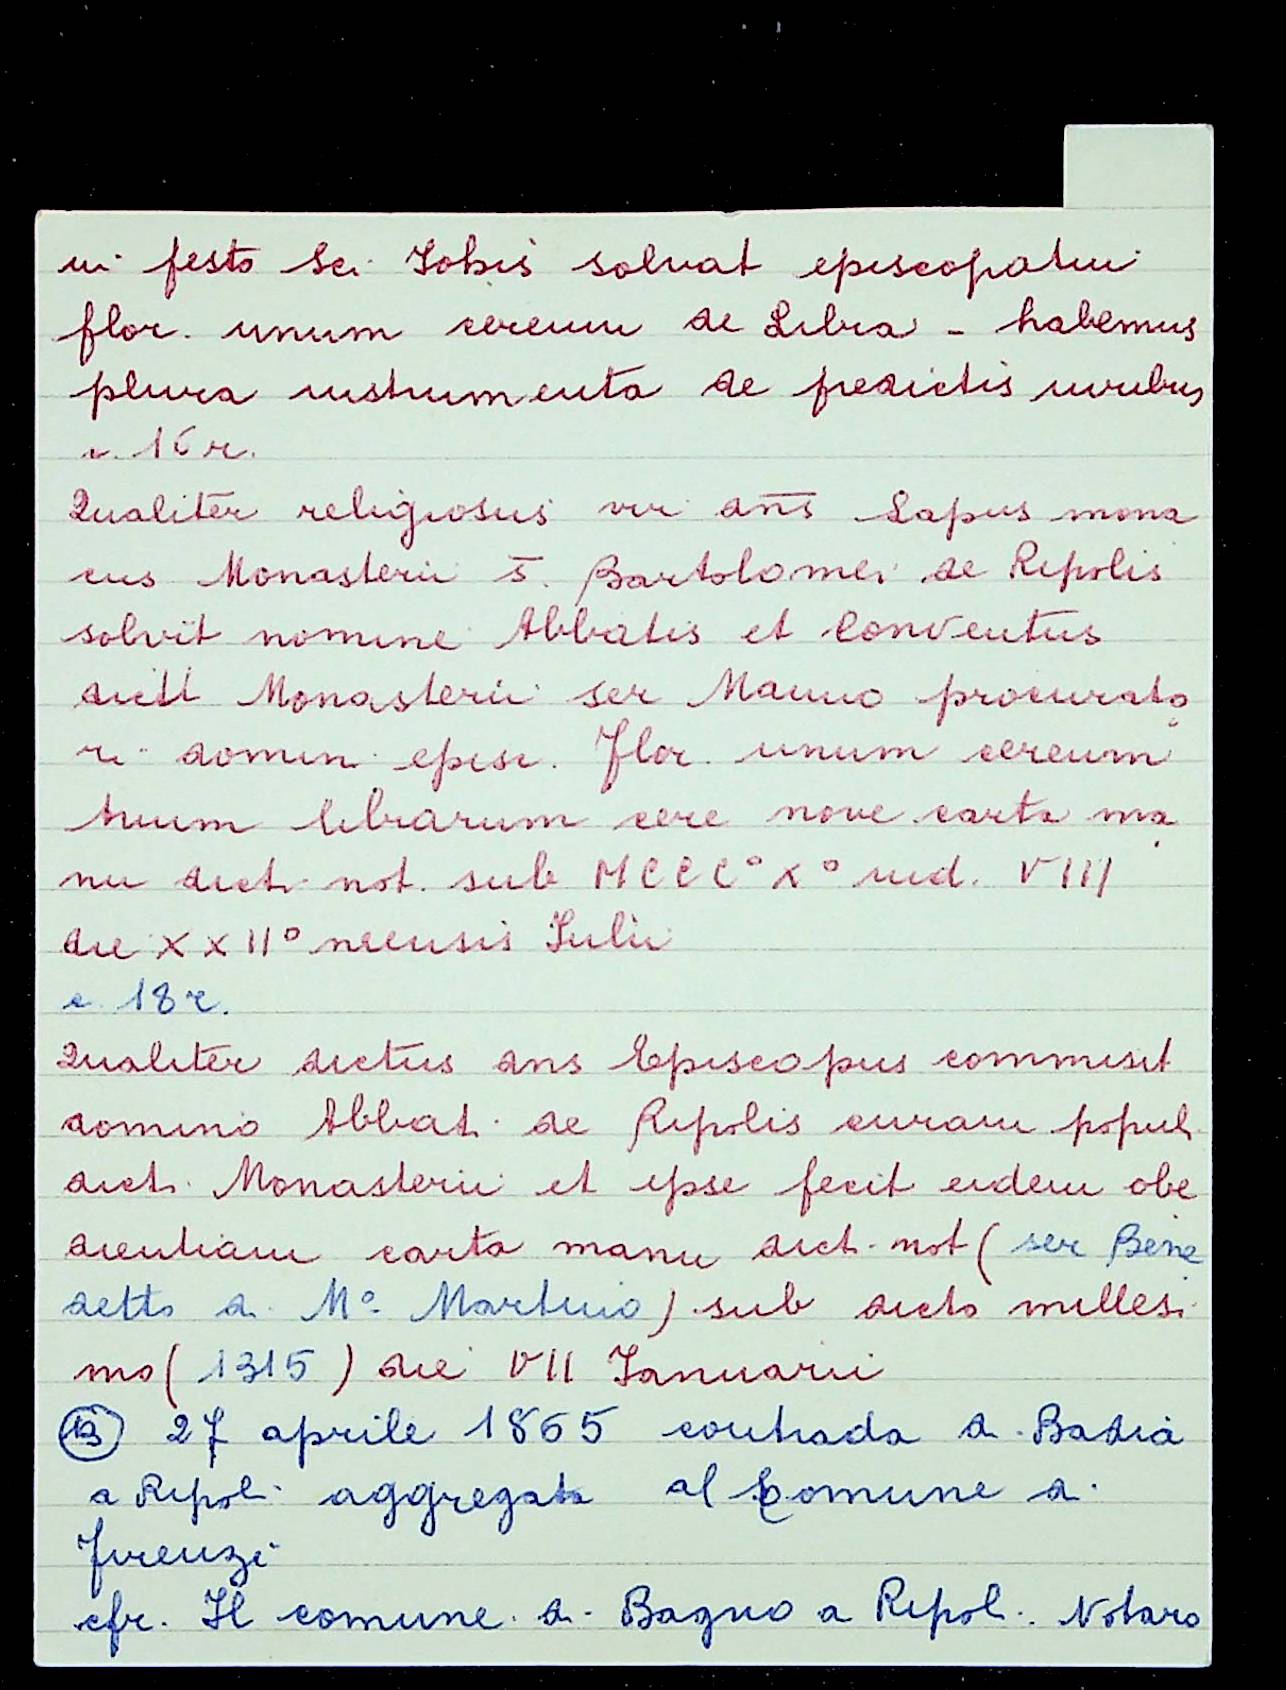 in festo Sci Iohis solvat episcopatui
flor. unum cereum de Libra - habemus
plura instrumenta de predictis iuribus
c. 16 r.
Qualiter religiosus vir dn̄s Lapus mona
cus Monasterii S̄. Bartolomei de Ripolis
solvit nomine Abbatis et Conventus
dicti Monasterii ser Manno procurato
ri domini episc. Flor. unum cereum
trium librarum cere nove carta ma
nu dicti not. sub MCCC° X° ind. VIII
die XXII° mensis Iulii
c. 18 r.
Qualiter dictus dns Episcopus commisit
domino Abbati de Ripolis curam populi
dicti Monasterii et ipse fecit eidem obe
dientiam carta manu dicti not (ser Bene
detto di M° Martino) sub dicto milles
mo (1315) die VII Ianuarii
(13) 27 aprile 1865 contrada di Badia
a Ripoli aggregata al Comune di
Firenze
cfr. Il comune di Bagno a Ripoli. Notaro